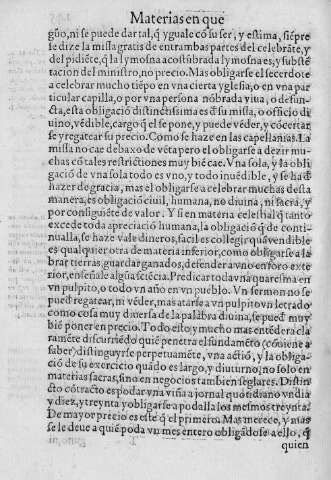 Materias en que
guo, ni se puede dar tal, q̃ yguale cõ su ser, y estima, siẽpre
se dize la missa gratis de entrambas partes del celebrãte, y
del pidiẽte, q̃ la lymosna acostũbrada lymosna es, y substẽ
tacion del ministro, no precio. Mas obligarse el sacerdote
a celebrar mucho tiẽpo en vna cierta yglesia, o en vna par
ticular capilla, o por vna persona nõbrada viua, o defun-
cta, esta obligació distinctissima es d̃ su missa, o officio di
uino, vẽdible, cargo q̃ el se pone, y puede vẽder, y cõcertar
se y regatear su precio. Como se haze en las capellanias. La
missa no cae debaxo de vẽta pero el obligarse a dezir mu-
chas cõ tales restrictiones muy biẽ cae. Vna sola, y la obli
gació de vna sola todo es vno, y todo inuẽdible, y se ha d̃
hazer de gracia, mas el obligarse a celebrar muchas desta
manera, es obligació ciuil, humana, no diuina, ni sacra, y
por consiguiẽte de valor. Y si en materia celestial q̃ tanto
excede toda apreciació humana, la obligació q̃ de conti-
nualla, se haze vale dineros, facil es collegir quã vendible
es qualquier otra de materia inferior, como obligarse a la
brar tierras, guardar ganados, defender a vno en foro exte
rior, enseñale alguna sciẽcia. Predicar toda vna quaresma en
vn pulpito, o todo vn año en vn pueblo. Vn sermon no se
pued̃ regatear, ni vẽder, mas atarse a vn pulpito vn letrado
como cosa muy diuersa de la palabra diuina, se pued̃ muy
biẽ poner en precio. Todo esto, y mucho mas entẽdera cla
ramẽte discurriẽdo quiẽ penetra el fundamẽto (conuiene a
saber) distinguyrse perpetuamẽte, vna actiõ, y la obliga-
ció de su exercicio quãdo es largo, y diuturno, no solo en
materias sacras, sino en negocios tambien seglares. Distin
cto cõtracto es podar vna viña a jornal quotidiano vn dia
y diez, y treynta y obligarse a podalla los mesmos treynta.
De mayor precio es este q̃ el primero. Mas merece, y mas
se le deue a quiẽ poda vn mes entero obligãdose a ello, q̃
quien